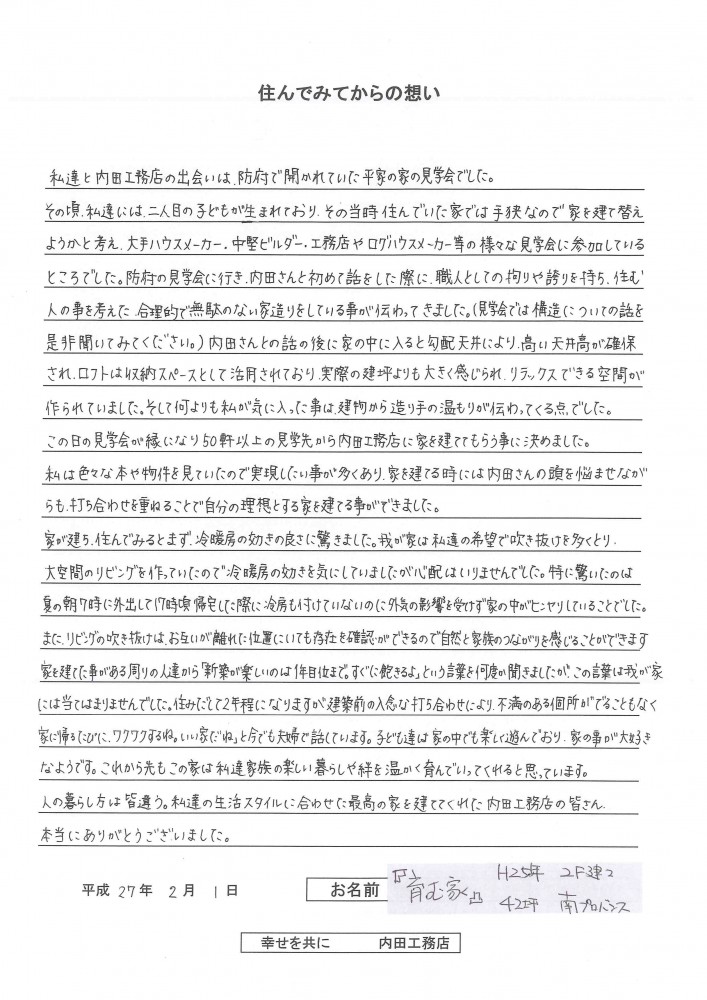 住んでみてからの想い
私達と内田工務店の出会いは、防府で開かれていた平家の家の見学会でした。
その頃、私達には、二人目の子どもが生まれており、その当時住んでいた家では手狭なので家を建て替え
ようかと考え、大手ハウスメーカー・中堅ビルダー・工務店やログハウスメーカー等の様々な見学会に参加している
ところでした。防府の見学会に行き、内田さんと初めて話をした際に、職人としての拘りや誇りを持ち、住む
人の事を考えた、合理的で無駄のない家造りをしている事が伝わってきました。(見学会では構造についての話を
是非聞いてみてください。)内田さんとの話の後に家の中に入ると勾配天井により、高い天井高が確保
され、ロフトは収納スペースとして活用されており、実際の建坪よりも大きく感じられ、リラックスできる空間が
作られていました。そして何よりも私が気に入った事は、建物から造り手の温もりが伝わってくる点でした。
この日の見学会が縁になり50軒以上の見学先から内田工務店に家を建ててもらう事に決めました。
私は色々な本や物件を見ていたので実現したい事が多くあり、家を建てる時には内田さんの頭を悩ませなが
らも、打ち合わせを重ねることで自分の理想とする家を建てる事ができました。
家が建ち、住んでみるとまず、冷暖房の効きの良さに驚きました。我が家は私達の希望で吹き抜けを多くとり、
大空間のリビングを作っていたので冷暖房の効きを気にしていましたが心配はいりませんでした。特に驚いたのは
夏の朝7時に外出して17時頃帰宅した際に冷房も付けていないのに外気の影響を受けず家の中がヒンヤリしていることでした。
また、リビングの吹き抜けは、お互いが離れた位置にいても存在を確認ができるので自然と家族のつながりを感じることができます
家を建てた事がある周りの人達から「新築が楽しいのは1年目位まで。すぐに飽きるよ」という言葉を何度か聞きましたが、この言葉は我が家
には当てはまりませんでした。住みだして2年程になりますが建築前の入念な打ち合わせにより、不満のある個所がでることもなく
家に帰るたびに、ワクワクするね。いい家だね」と今でも夫婦で話しています。子ども達は家の中でも楽しく遊んでおり、家の事が大好き
なようです。これから先もこの家は私達家族の楽しい暮らしや絆を温かく育んでいってくれると思っています。
人の暮らし方は皆違う。私達の生活スタイルに合わせた最高の家を建ててくれた内田工務店の皆さん、
本当にありがとうございました。
平成27年 2月 1日 お名前 『育む家』 H25年 2F建
42坪 南プロバンス
幸せを共に 内田工務店